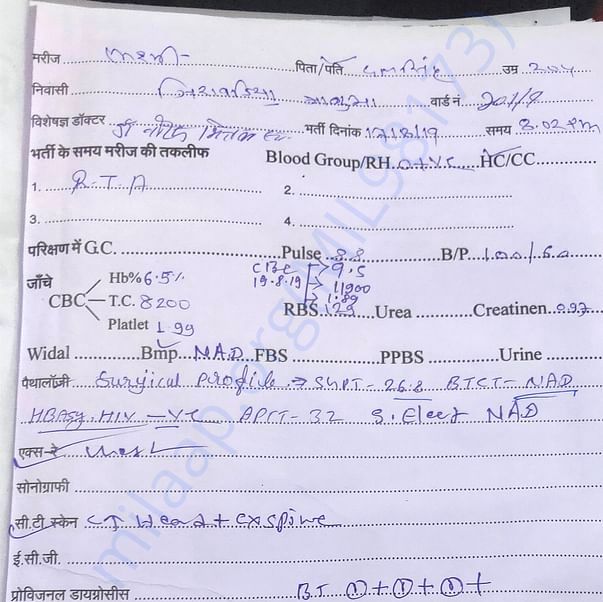 मरीज पिता/पति उम्र
निवासी वार्ड नं.
विशेषज्ञ डॉक्टर डॉ भर्ती दिनांक 17/8/19 समय 3.02 PM
भर्ती के समय मरीज की तकलीफ Blood Group/RH O+VE HC/CC
1. R.T.A 2.
3. 4.
परिक्षण में G.C. Pulse 88 B/P 100/60
जाँचे Hb% 6.5% CBC 19.8.19 9.5
CBC T.C. 8200 11900
Platlet 1.99 1.89 RBS 129 Urea Creatinen 0.97
Widal Bmp. NAD FBS PPBS Urine
पैथालॉजी Surgical Profile → SGPT - 26.8 BTCT - NAD
HBASg, HIV - VE APTT - 32 S. Elect NAD
एक्स-रे
सोनोग्राफी
सी.टी. स्केन CT Head +
ई.सी.जी.
प्रोविजनल डायग्रोसीस BT ① + ① + +
milaap.org/MIL98173